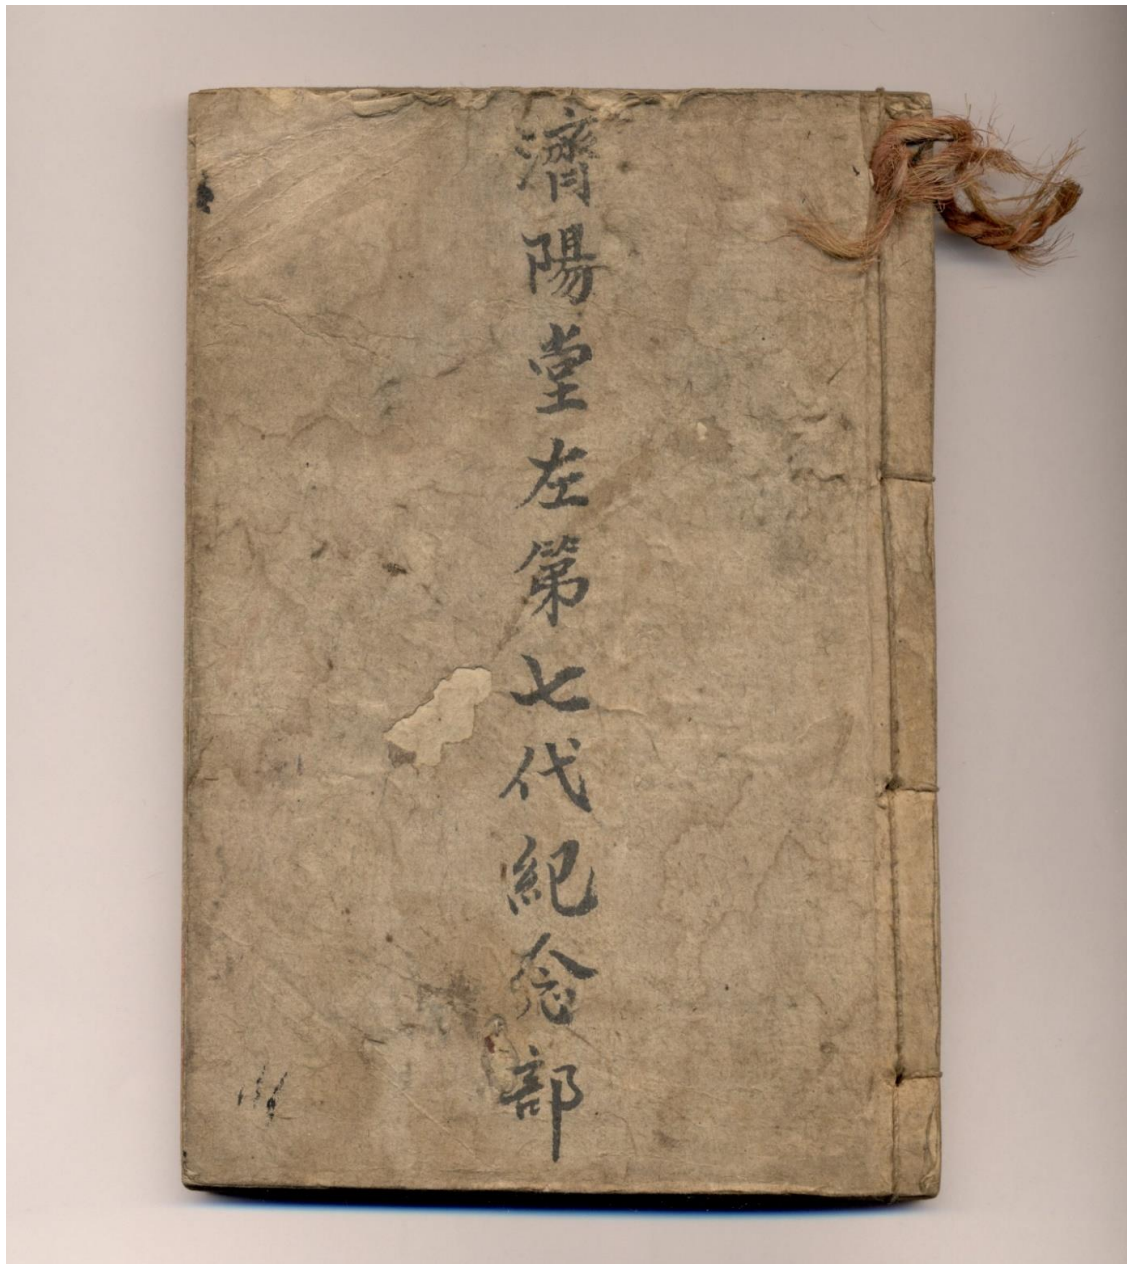 濟陽堂左第七代紀念部